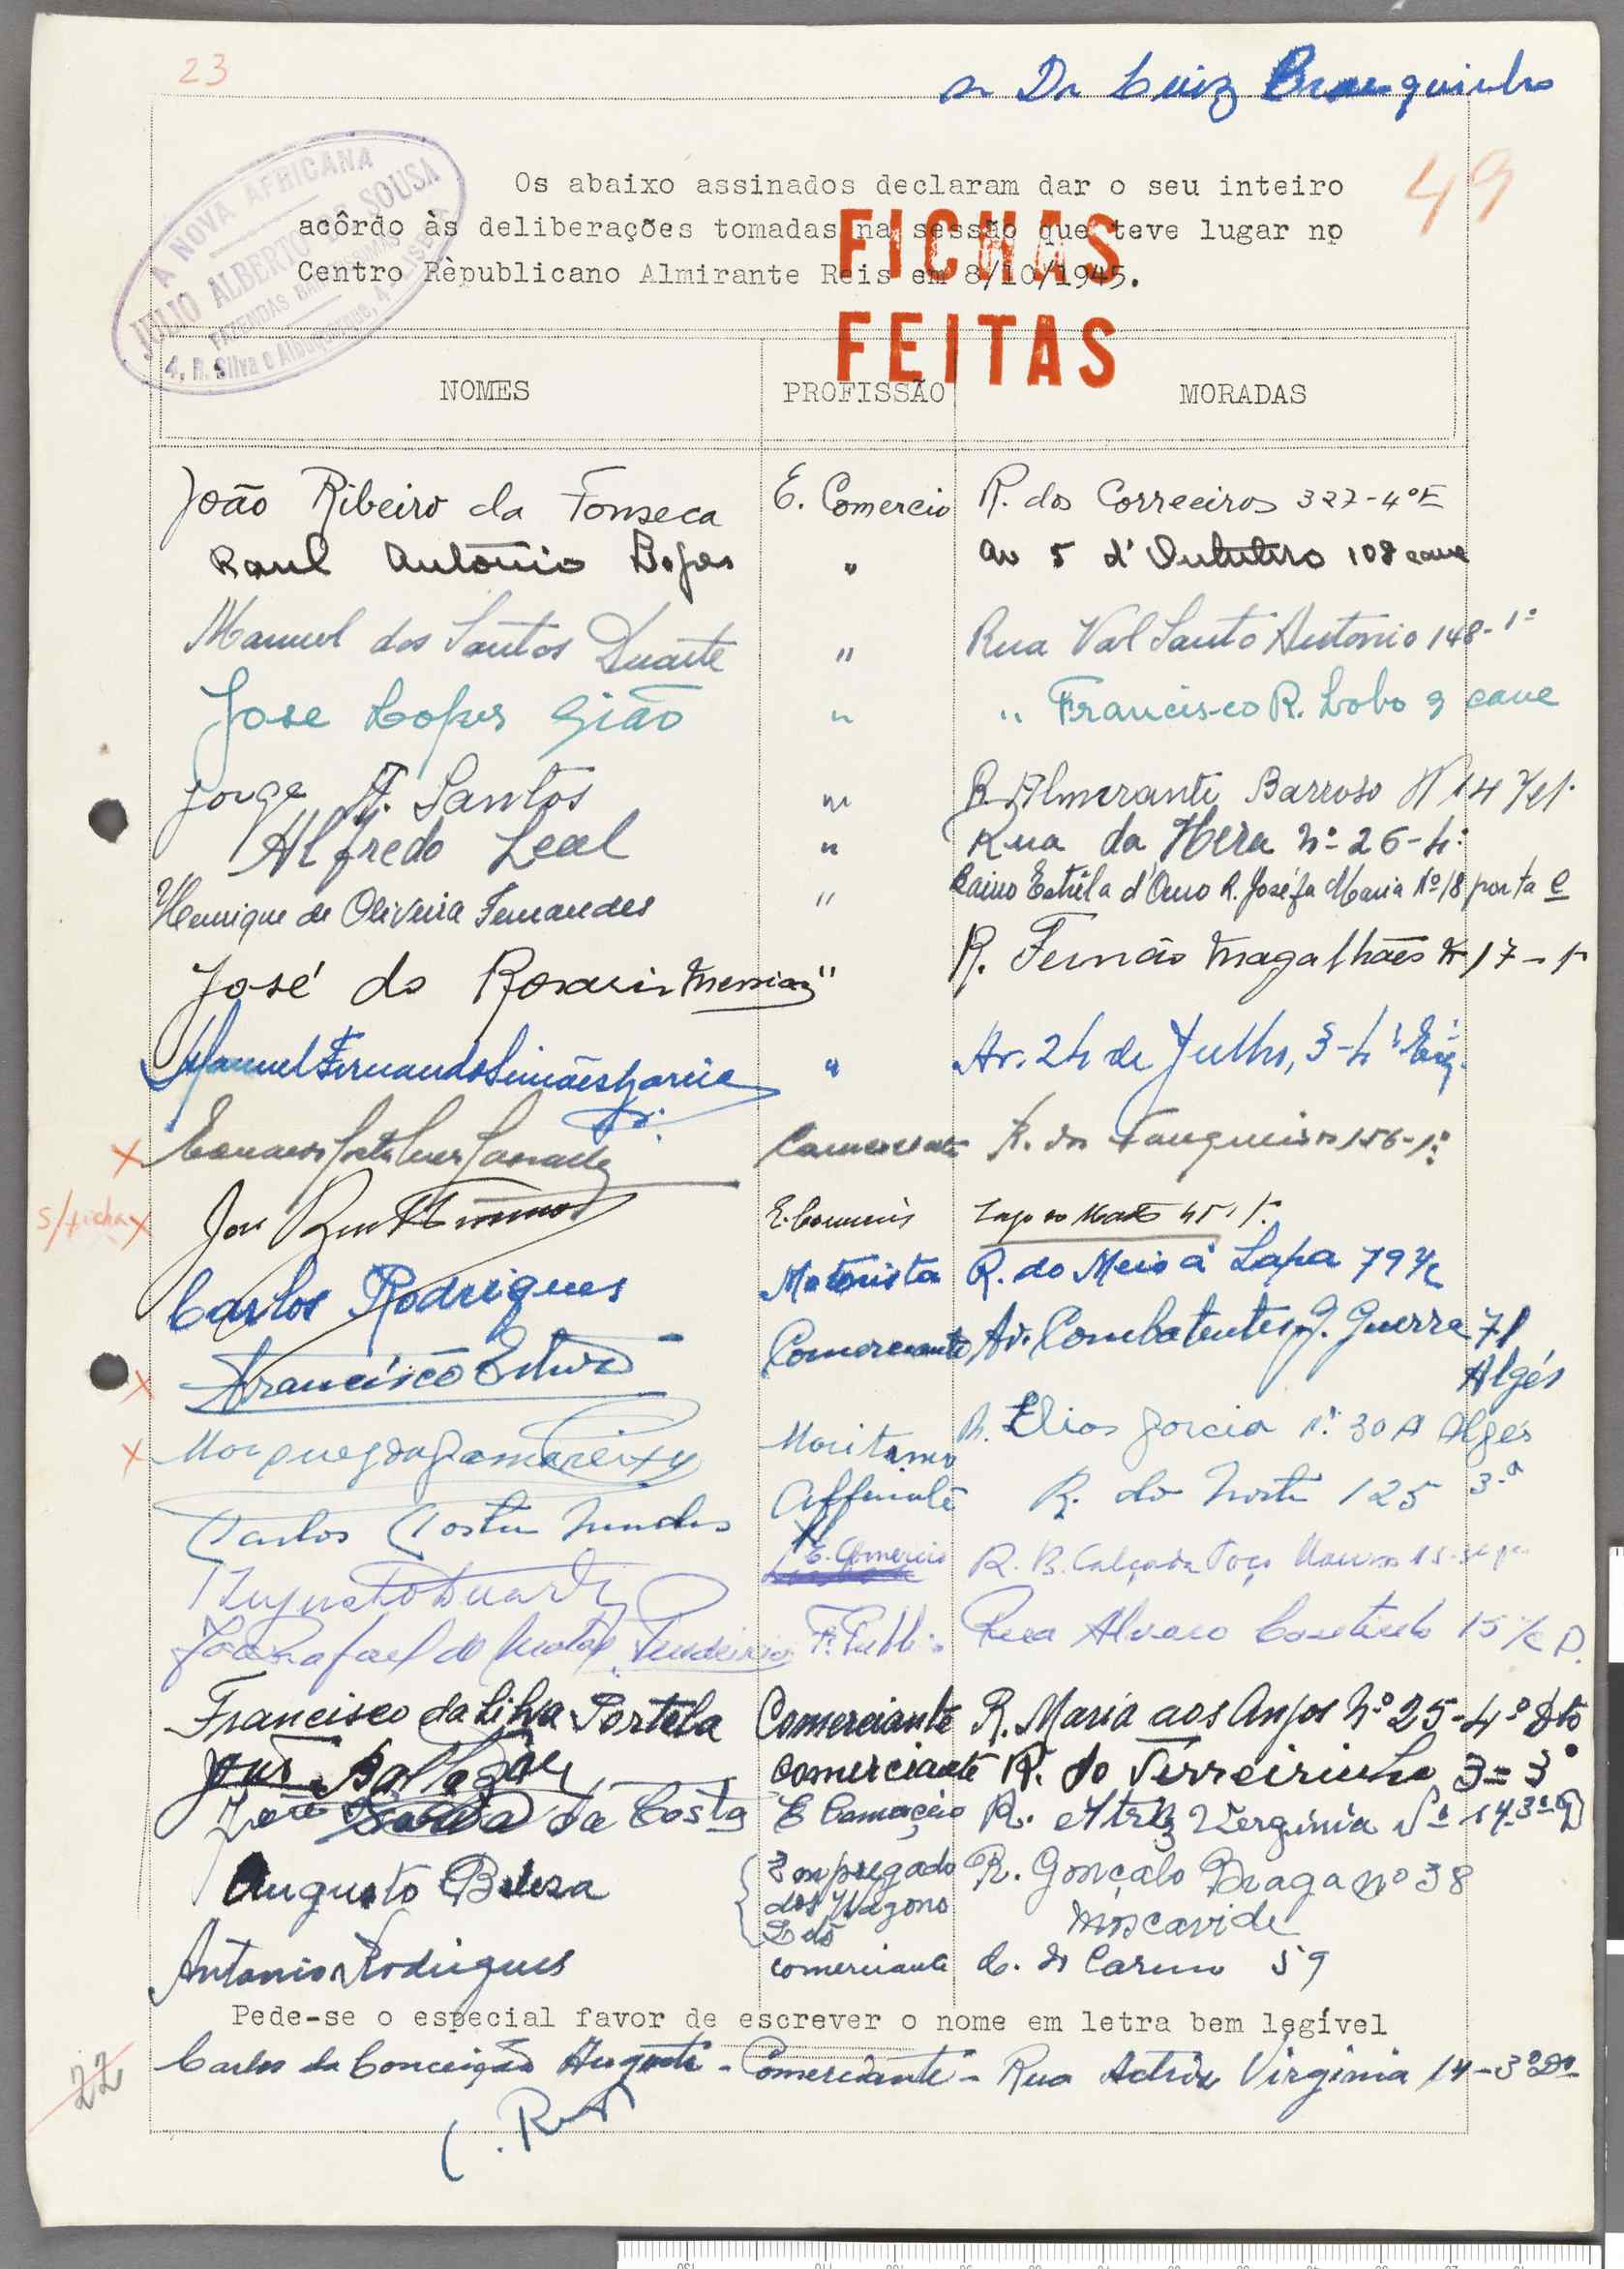 23
Dr Luiz
49
A NOVA AFRICANA
JULIO ALBERTO DE SOUSA
FAZENDAS
4, R. Silva e Albuquerque, 4 - LISBOA
Os abaixo assinados declaram dar o seu inteiro
acôrdo às deliberações tomadas na sessão que teve lugar no
Centro Rèpublicano Almirante Reis em 8/10/1945.
FICHAS
FEITAS
NOMES PROFISSÃO MORADAS
João Ribeiro da Fonseca E. Comercio R. dos Correeiros 327-4º E
Raul António Lopes " Av 5 d'Outubro 108 cave
Manuel dos Santos Duarte " Rua Val Santo Antonio 148-1º
Jose Lopes Gião " " Francisco R. Lobo 9 cave
Jorge A. Santos " R. Almirante Barroso Nº 14
Alfredo Leal " Rua da Hera nº 26-4º
Henrique de Oliveira Fernandes " Bairro Estrêla d'Ouro R. Joséfa Maria Nº 18 porta e
José do Rosario Messias " R. Fernão Magalhães Nº 17-1º
Manuel Fernando Simões Garcia " Av. 24 de Julho, 3-4º Esq.
x Comerciante R. dos Fanqueiros 156-1º
s/ficha x José E. Comercio
Carlos Rodrigues Motorista R. do Meio á Lapa 79 r/c
x Francisco Comerciante Av. Combatentes G. Guerra 71
Algés
x Maritimo R. Elias Garcia nº 30 A Algés
Carlos Costa Mendes Alfaiate R. do Norte 125 3.º
Augusto Duarte E. Comercio R. B. Calçada Poço
João Rafael de F. Publico Rua Alvaro Coutinho 15 r/c D.
Francisco da Silva Portela Comerciante R. Maria aos Anjos nº 25-4º Dto
José Baltazar comerciante R. do Terreirinho 3=3º
João da Costa E Comercio R. Atriz Verginia Nº 14 3º D
Augusto Beleza { Empregado R. Gonçalo Braga nº 38
dos Wagons Moscavide
Antonio Rodrigues comerciante C. do Carmo 59
Pede-se o especial favor de escrever o nome em letra bem legível
22
Carlos da Conceição Augusto - Comerciante - Rua Actriz Virginia 14-3º Dº